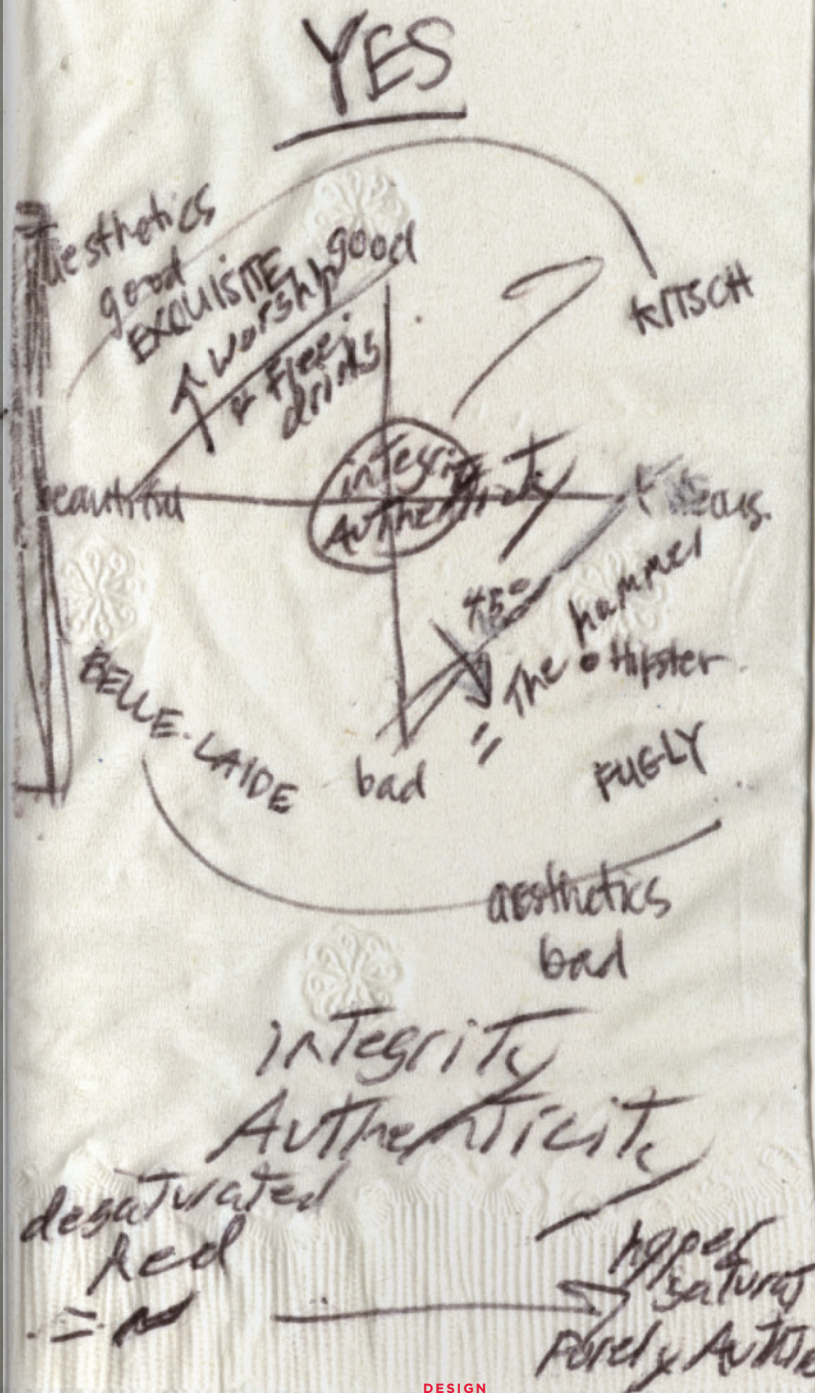 YES
aesthetics
good
EXQUISITE
worship
good
free
drinks
KITSCH
beautiful
integrity
Authenticity
45°
hammer
= The Hipster
BELLE-LAIDE
bad
FUGLY
aesthetics
bad
integrity
Authenticity
desaturated
Red
=
hyper
saturat
Purely Authe
DESIGN